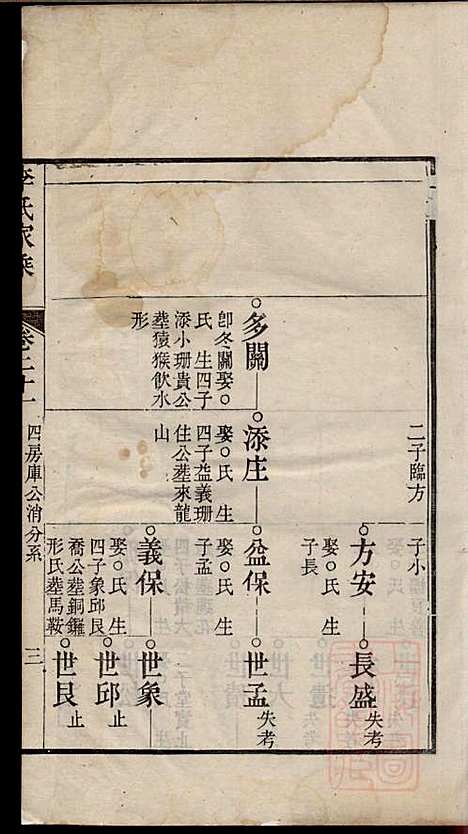 二子臨方
子小
方安
娶○氏 生
子長
長盛
失考
多關
卽冬關娶○
氏 生四子
添小珊貴公
塟猿猴飲水
形
添庄
娶○氏 生
四子益義珊
住公塟來龍
山
益保
娶○氏 生
子孟
世孟
失考
義保
娶○氏 生
四子象邱艮
喬公塟銅鑼
形氏塟馬鞍
世象
世邱
止
世艮
止
李氏家乘
卷之二十一
四房庫公消分系
三